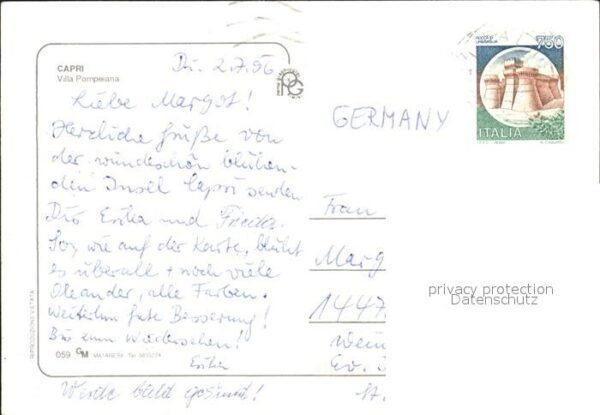 CAPRI
Villa Pompeiana
Di. 2.7.96
Liebe Margot!
Herzliche Grüße von
der wunderschön blühen-
den Insel Capri senden
Dir Erika und Frieder.
So, wie auf der Karte, blüht
es überall + noch viele
Oleander, alle Farben.
Weiterhin gute Besserung!
Bis zum Wiedersehen!
Erika
Werde bald gesund!
059
RIPRODUZIONE VIETATA
GERMANY
750
ITALIA
Frau
Marg
1447
privacy protection
Datenschutz